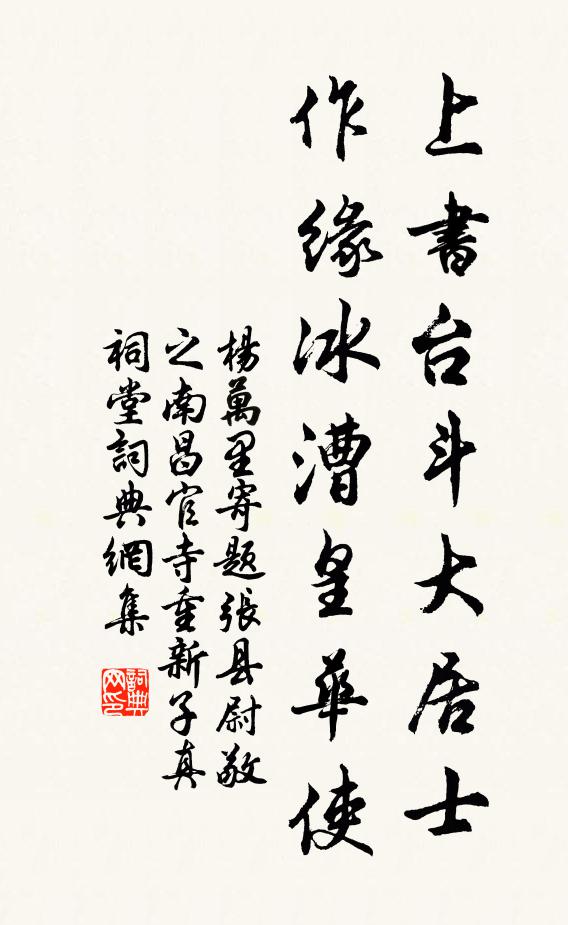 上書台斗大居士
作緣冰漕皇華使
楊萬里寄題張县尉敬
之南昌官寺重新子真
祠堂詞典網集
詞典网印